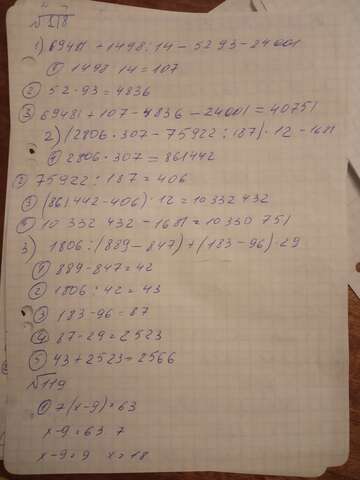 №118
1) 69481 + 1498 : 14 - 52 93 - 24001
① 1498 14 = 107
② 52 · 93 = 4836
③ 69481 + 107 - 4836 - 24001 = 40751
2) (2806 · 307 - 75922 : 187) · 12 - 1681
① 2806 · 307 = 861442
② 75922 : 187 = 406
③ (861442 - 406) · 12 = 10332432
④ 10 332 432 - 1681 = 10330 751
3) 1806 : (889 - 847) + (183 - 96) · 29
① 889 - 847 = 42
② 1806 : 42 = 43
③ 183 - 96 = 87
④ 87 · 29 = 2523
⑤ 43 + 2523 = 2566
№119
① 7(x - 9) = 63
x - 9 = 63 7
x - 9 = 9 x = 18